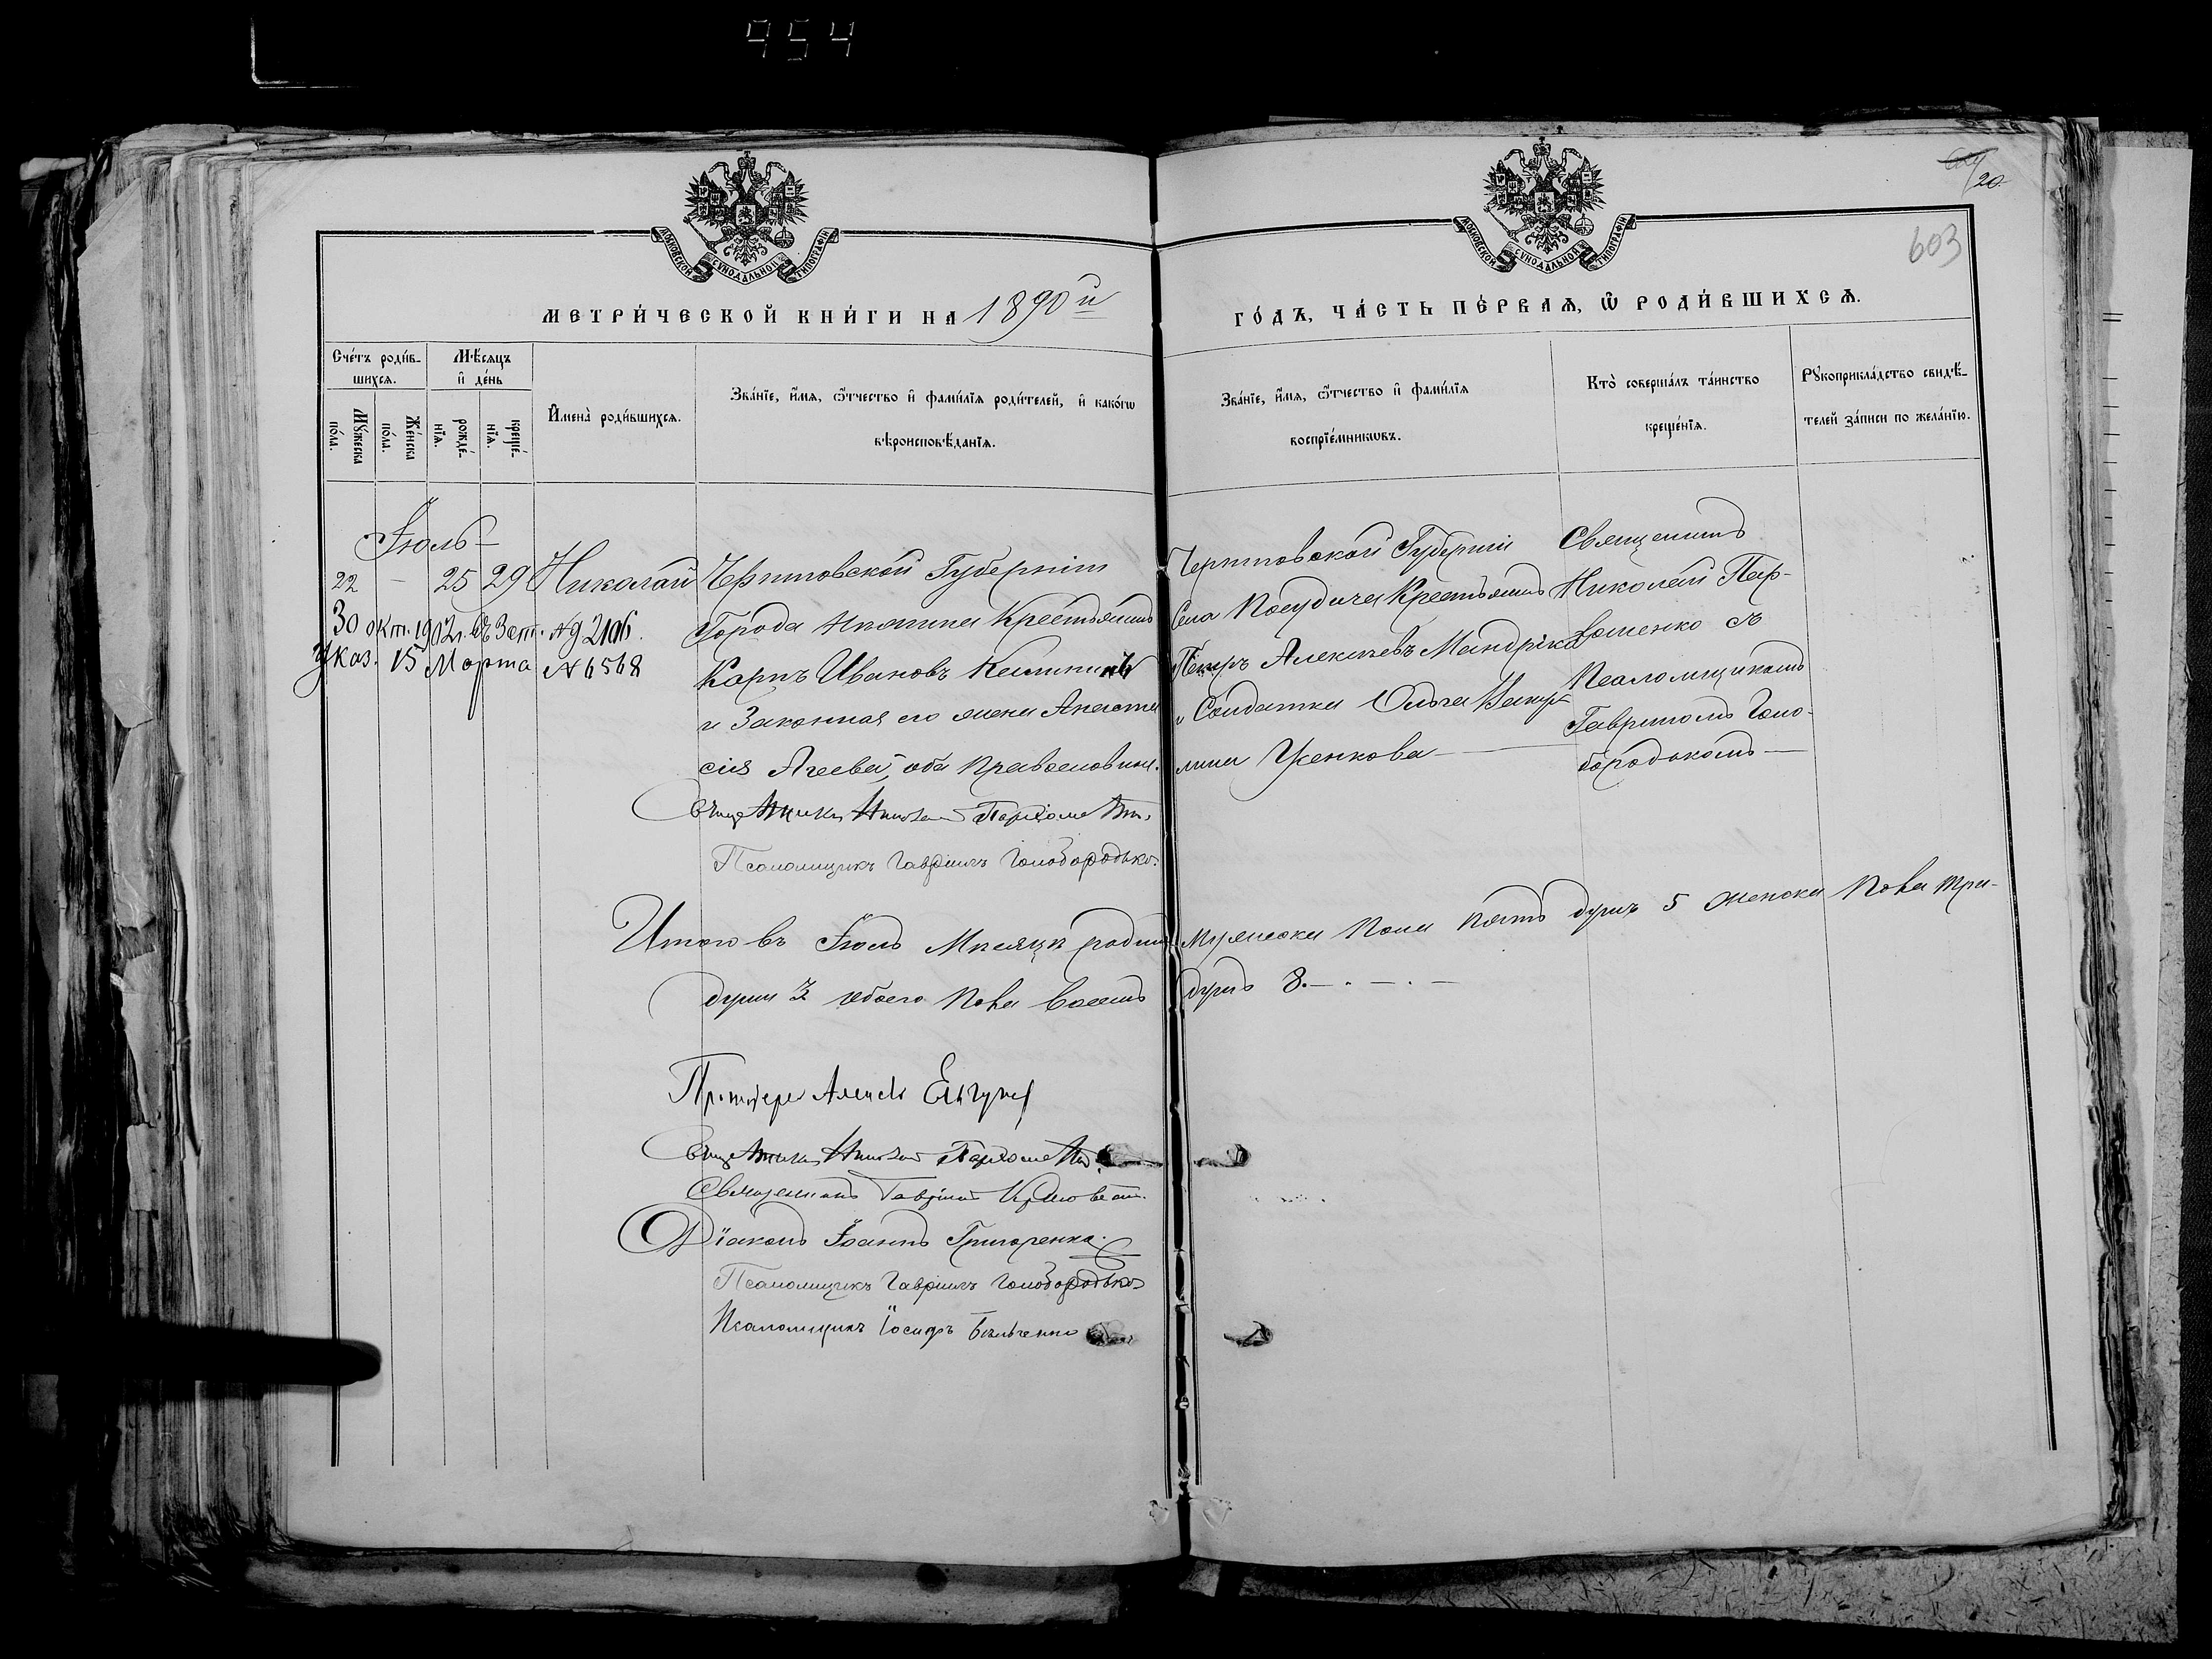 954
20
603
МОСКОВСКОЙ СУНОДАЛЬНОЙ ТИПОГРАФІИ
МОСКОВСКОЙ СУНОДАЛЬНОЙ ТИПОГРАФІИ
МЕТРИ́ЧЕСКОЙ КНИ́ГИ НА 1890й
ГО́ДЪ, ЧА́СТЬ ПЕ́РВАЯ, Ѿ РОДИ́ВШИХСЯ.
Сче́тъ роди́в-
шихся.
Мꙋ́жеска
по́ла.
Же́нска
по́ла.
Мѣ́сяцъ
и҆ де́нь
рожде́-
нїѧ.
креще́-
нїѧ.
И҆мена̀ роди́вшихся.
Зва́нїе, и҆́мѧ, ѻ҆́тчество и҆ фами́лїѧ роди́телей, и҆ како́гѡ
вѣроисповѣ́данїѧ.
Зва́нїе, и҆́мѧ, ѻ҆́тчество и҆ фами́лїѧ
воспрїе́мникѡвъ.
Кто̀ соверша́лъ та́инство
креще́нїѧ.
Рꙋкоприкла́дство свидѣ́-
телей за́писи по жела́нїю.
Іюль
22 – 25 29 Николай
30 окт. 1912 г. № 2106.
Указ. 15 Марта № 6568
Черниговской Губерніи
Города Крестьянинъ
Карпъ Ивановъ
и Законная его жена Анаста
сія Агеева, оба православные.
Священникъ Николай Пархоменко
Псаломщикъ Гавріилъ Голобородько.
Черниговской Губерніи
Села Посудичи Крестьянинъ
Алексіевъ Мандрика
и Солдатка Ольга
Ученкова
Священникъ
Николай Пар-
хоменко съ
Псаломщикомъ
Гавріиломъ Голо-
бородькомъ
Итого въ Іюлѣ Мѣсяцѣ родил. Мужеска Пола пять душъ 5 женска Пола три-
души 3 обоего Пола восемь душъ 8.
Протоіерей Алексѣй
Священникъ Николай Пархоменко
Священникъ Гавріилъ
Діаконъ Іоаннъ Григоренко.
Псаломщикъ Гавріилъ Голобородько
Псаломщикъ Іосифъ